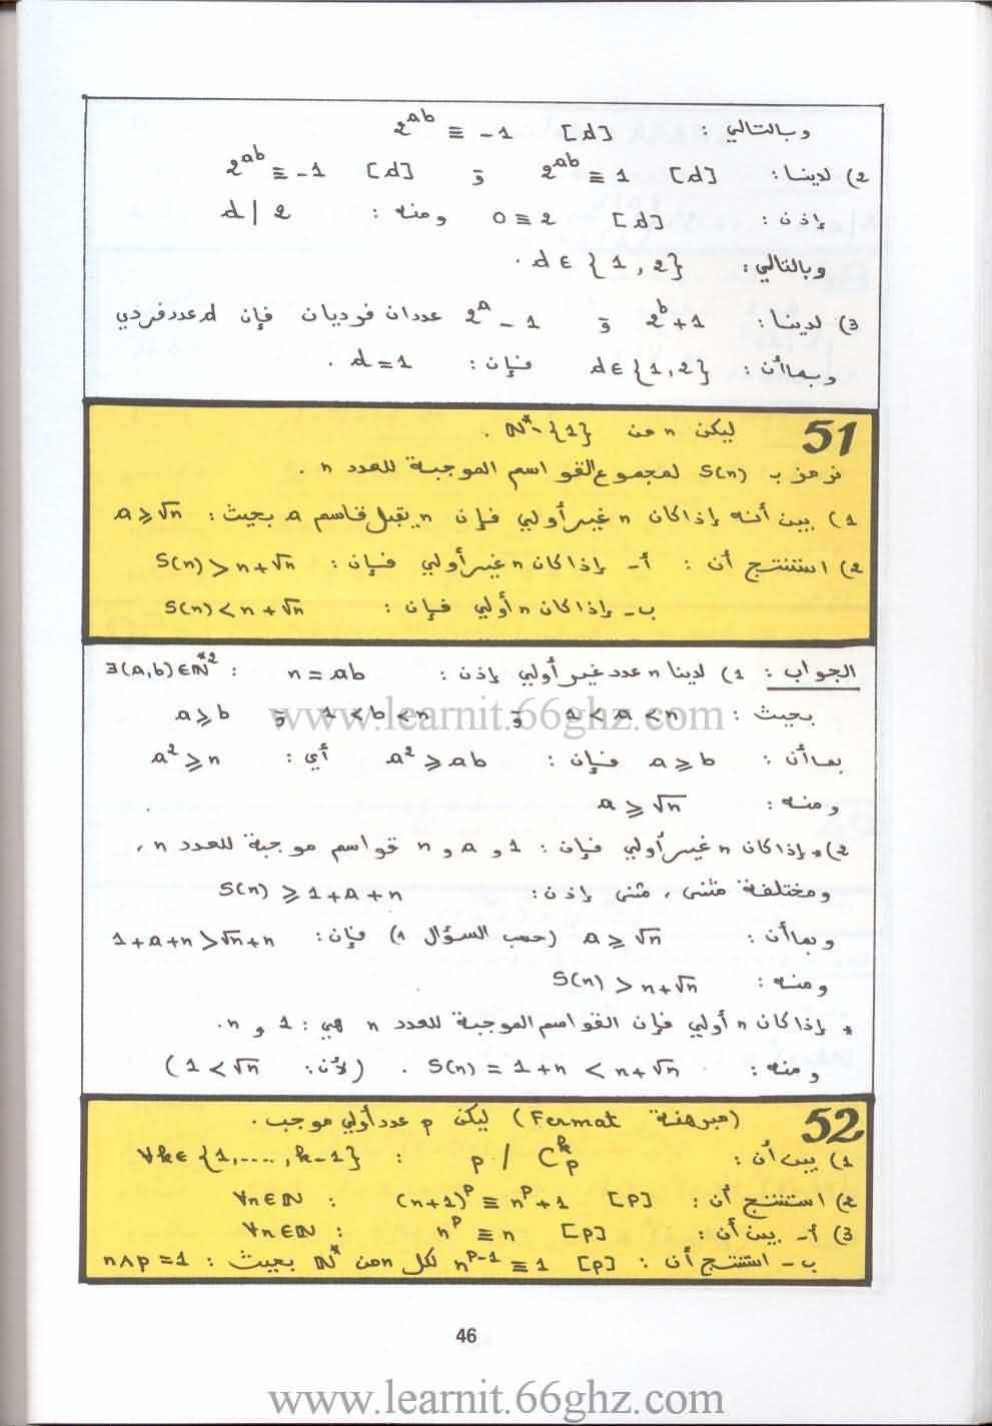 وبالتالي : 2^{ab} ≡ -1 [d]
2) لدينا : 2^{ab} ≡ 1 [d] و 2^{ab} ≡ -1 [d]
إذن : 0 ≡ 2 [d] ومنه : d | 2
وبالتالي : d ∈ {1, 2} .
3) لدينا : 2^b + 1 و 2^a - 1 عددان فرديان فإن d عدد فردي
وبما أن : d ∈ {1, 2} فإن : d = 1 .
51 ليكن n من N* - {1} .
نرمز بـ S(n) لمجموع القواسم الموجبة للعدد n .
1) بين أنه إذا كان n غير أولي فإن n يقبل قاسم a بحيث : a ≥ √n
2) استنتج أن : أ- إذا كان n غير أولي فإن : S(n) > n + √n
ب- إذا كان n أولي فإن : S(n) < n + √n
الجواب : 1) لدينا n عدد غير أولي إذن : n = ab : ∃(a,b) ∈ N*²
بحيث : 1 < a < n و 1 < b < n و a ≥ b
بما أن : a ≥ b فإن : a² ≥ ab أي : a² ≥ n
ومنه : a ≥ √n
2) * إذا كان n غير أولي فإن : 1 و a و n قواسم موجبة للعدد n ،
ومختلفة مثنى ، مثنى إذن : S(n) ≥ 1 + a + n
وبما أن : a ≥ √n (حسب السؤال 1) فإن : 1 + a + n > √n + n
ومنه : S(n) > n + √n
* إذا كان n أولي فإن القواسم الموجبة للعدد n هي : 1 و n .
ومنه : S(n) = 1 + n < n + √n . (لأن : 1 < √n)
52 (مبرهنة Fermat) ليكن p عدد أولي موجب .
1) بين أن : p / C_p^k : ∀k ∈ {1, ...., k-1}
2) استنتج أن : (n+1)^p ≡ n^p + 1 [p] : ∀n ∈ N
3) أ- بين أن : n^p ≡ n [p] : ∀n ∈ N
ب- استنتج أن : n^{p-1} ≡ 1 [p] لكل n من N* بحيث : n∧p = 1
46
www.learnit.66ghz.com
www.learnit.66ghz.com